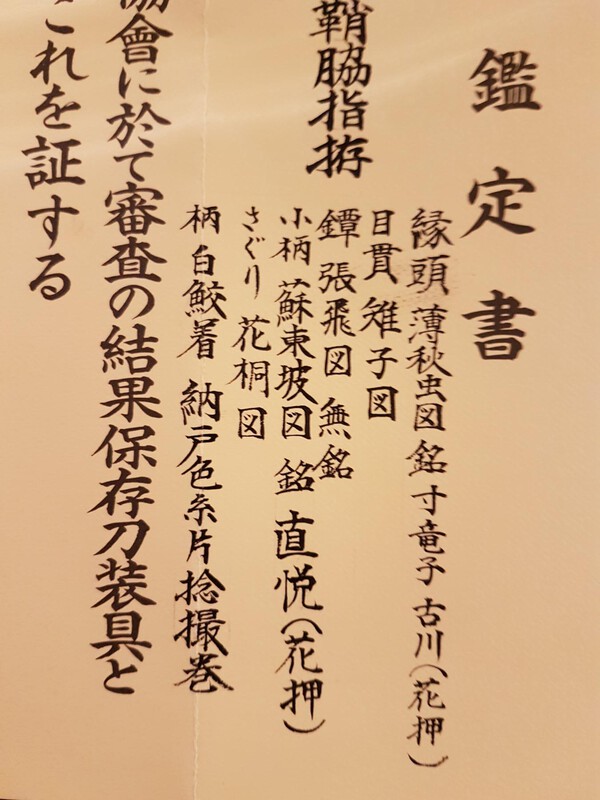 鑑定書
鞘脇指拵
縁頭 薄秋虫図 銘 寸竜子 古川(花押)
目貫 雉子図
鐔 張飛図 無銘
小柄 蘇東坡図 銘 直悦(花押)
さぐり 花桐図
柄 白鮫着 納戸色糸片捻撮巻
協會に於て審査の結果保存刀装具と
これを証する